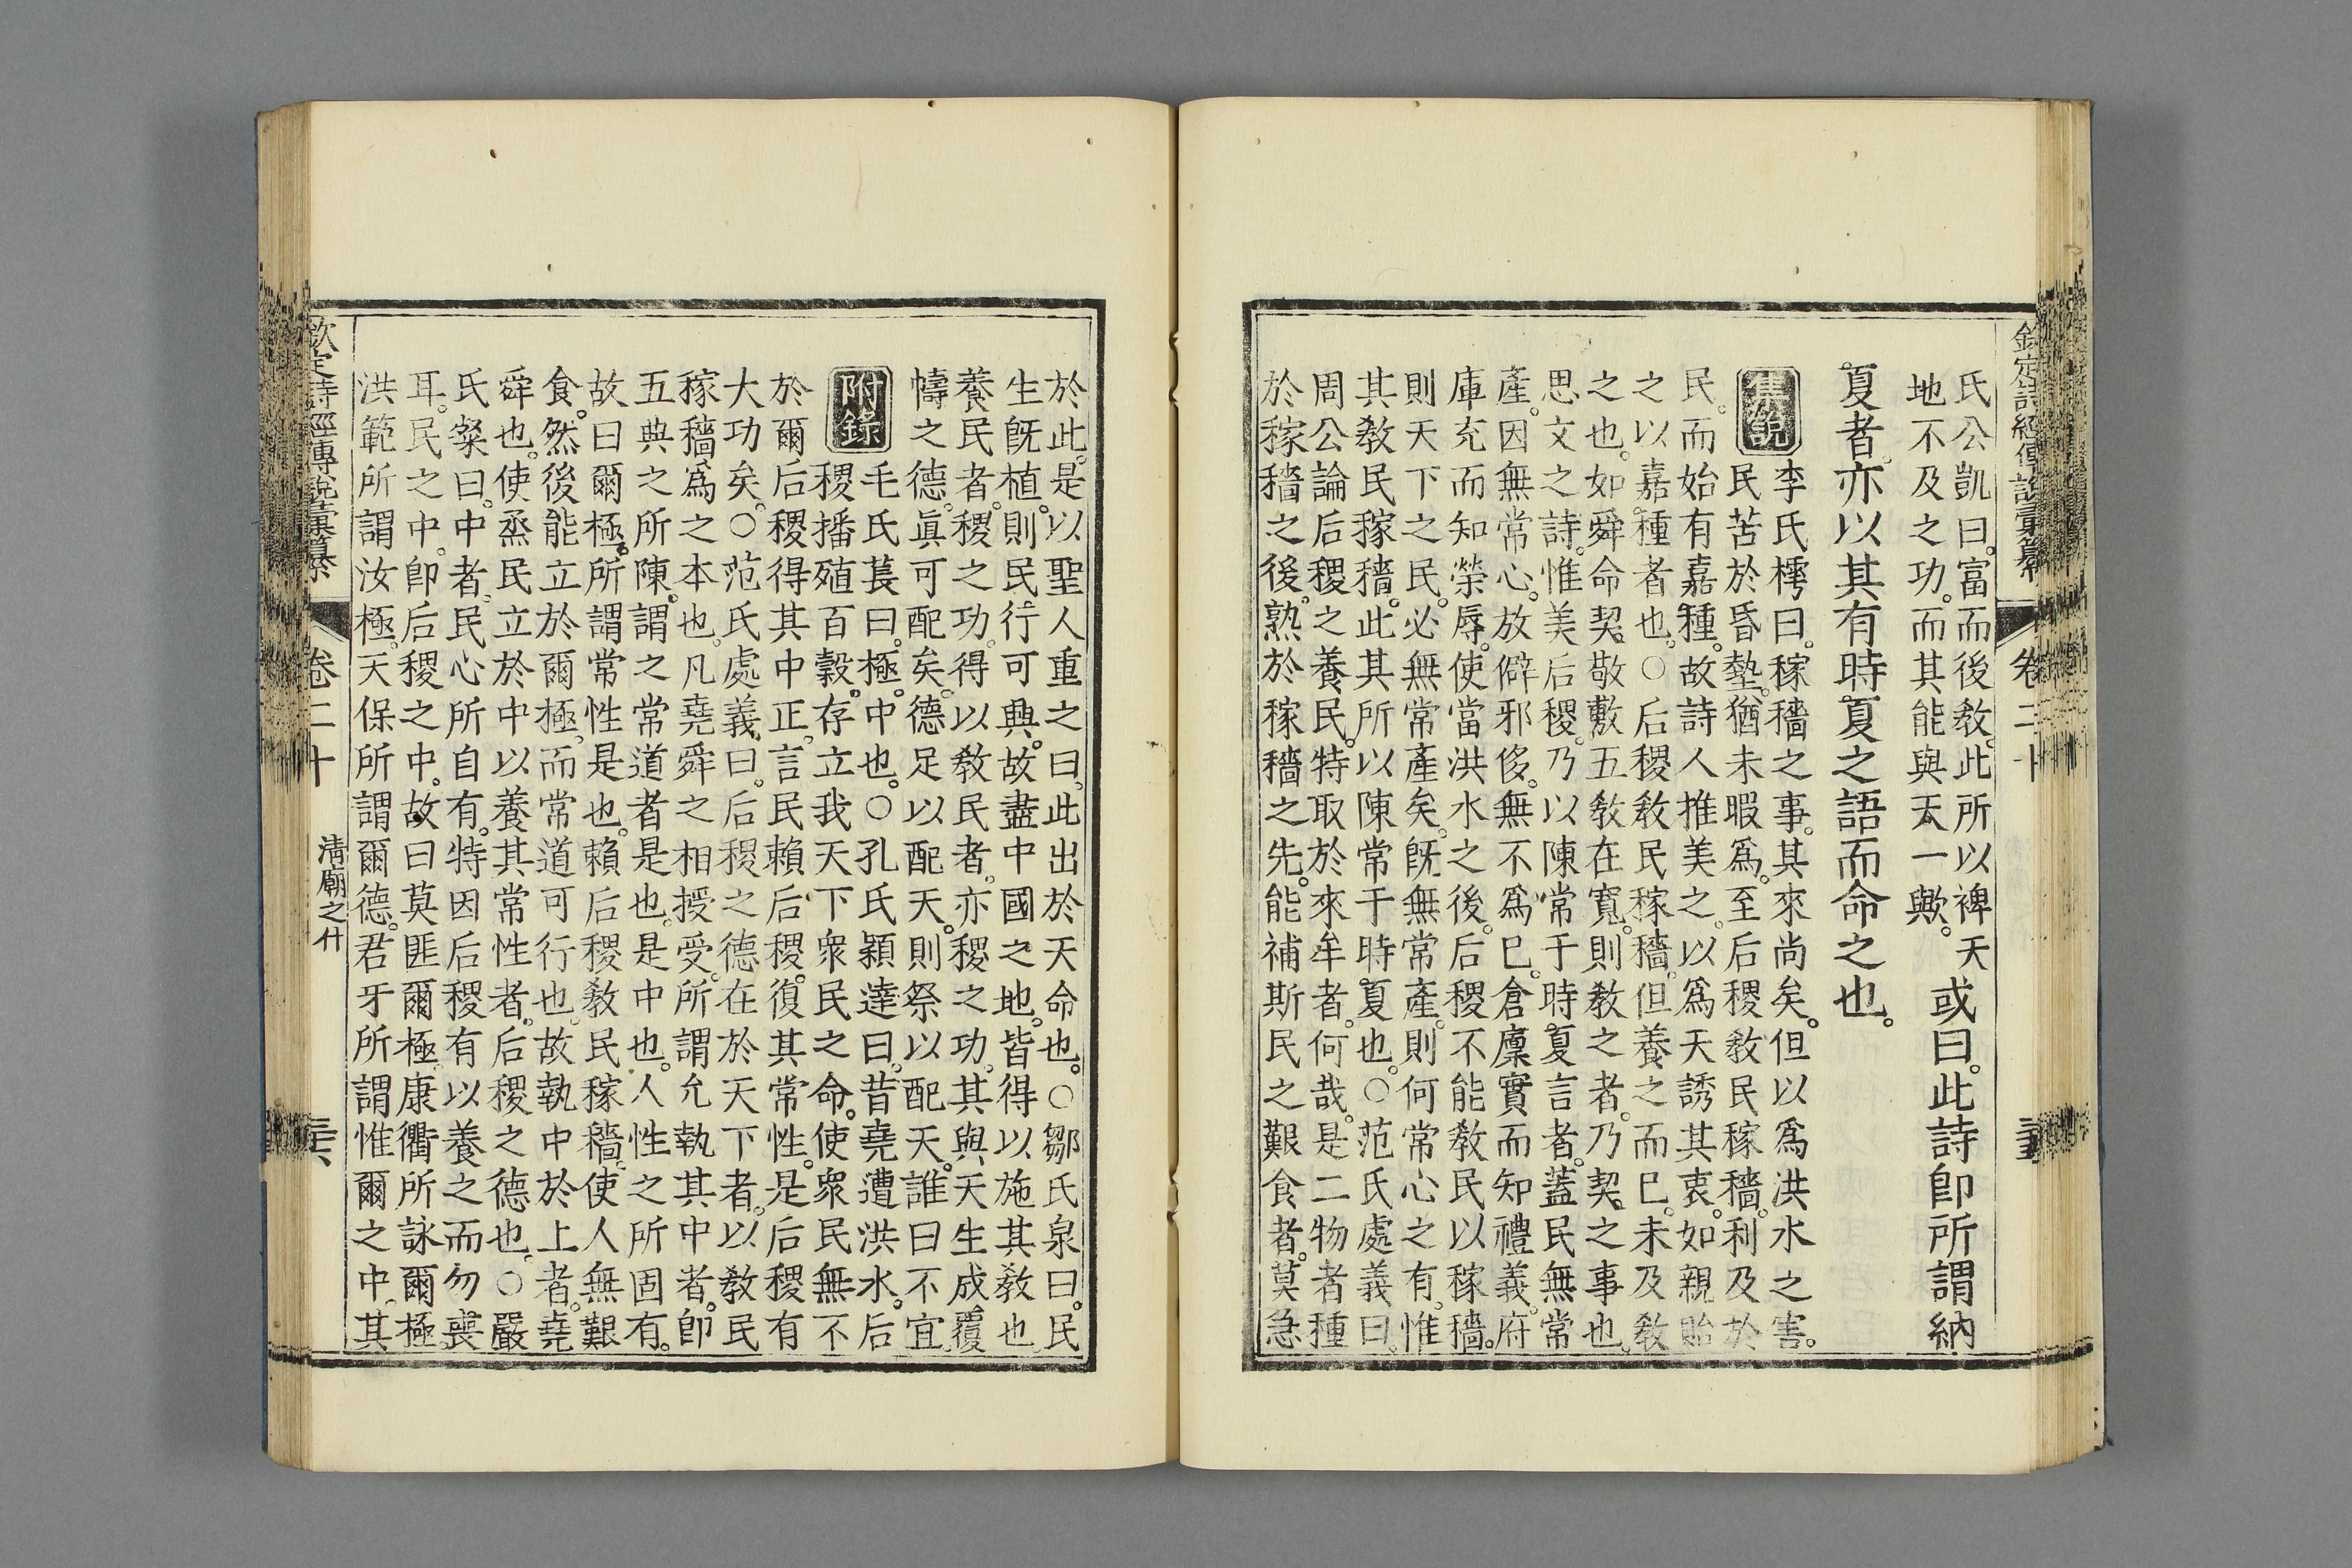 欽定詩經傳說彙纂 卷二十
氏公凱曰。富而後敎。此所以裨天
地不及之功。而其能與天一歟。
或曰。此詩卽所謂納
夏者。亦以其有時夏之語而命之也。
集說
李氏樗曰。稼穡之事。其來尚矣。但以爲洪水之害。
民苦於昏墊。猶未暇爲。至后稷敎民稼穡。利及於
民。而始有嘉種。故詩人推美之。以爲天誘其衷。如親貽
之以嘉種者也。○后稷敎民稼穡。但養之而巳。未及敎
之也。如舜命契。敬敷五敎在寬。則敎之者。乃契之事也。
思文之詩。惟美后稷。乃以陳常于時夏言者。蓋民無常
產。因無常心。放僻邪侈。無不爲巳。倉廩實而知禮義。府
庫充而知榮辱。使當洪水之後。后稷不能敎民以稼穡。
則天下之民。必無常產矣。旣無常產。則何常心之有。惟
其敎民稼穡。此其所以陳常于時夏也。○范氏處義曰。
周公論后稷之養民。特取於來牟者。何哉。是二物者種
於稼穡之後。熟於稼穡之先。能補斯民之艱食者。莫急
於此。是以聖人重之曰。此出於天命也。○鄒氏泉曰。民
生旣植。則民行可興。故盡中國之地。皆得以施其敎也。
養民者。稷之功。得以敎民者。亦稷之功。其與天生成覆
幬之德。眞可配矣。德足以配天。則祭以配天。誰曰不宜。
附錄
毛氏萇曰。極。中也。○孔氏穎達曰。昔堯遭洪水。后
稷播殖百穀。存立我天下衆民之命。使衆民無不
於爾后稷得其中正。言民賴后稷。復其常性。是后稷有
大功矣。○范氏處義曰。后稷之德在於天下者。以敎民
稼穡爲之本也。凡堯舜之相授受。所謂允執其中者。卽
五典之所陳。謂之常道者是也。是中也。人性之所固有。
故曰爾極。所謂常性是也。賴后稷敎民稼穡。使人無艱
食。然後能立於爾極。而常道可行也。故執中於上者。堯
舜也。使烝民立於中以養其常性者。后稷之德也。○嚴
氏粲曰。中者。民心所自有。特因后稷有以養之而勿喪
耳。民之中。卽后稷之中。故曰莫匪爾極。康衢所詠爾極。
洪範所謂汝極。天保所謂爾德。君牙所謂惟爾之中。其
欽定詩經傳說彙纂 卷二十 淸廟之什